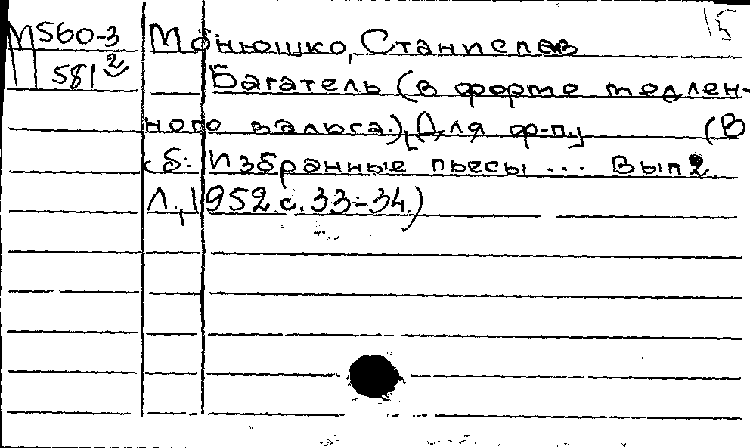 15
М560-3 Монюшко, Станислав
П 581² Багатель (в форме медлен-
ного вальса.) [Для ф-пу (В
сб: Избранные пьесы ... Вып 2.
Л., 1952. с. 33-34.)